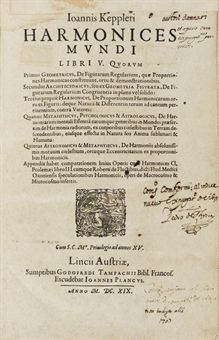 Ioannis Keppleri
HARMONICES
MVNDI
LIBRI V. QVORVM
Primus GEOMETRICVS, De Figurarum Regularium, quæ Proportiones Harmonicas constituunt, ortu & demonstrationibus.
Secundus ARCHITECTONICVS, seu ex GEOMETRIA FIGVRATA, De Figurarum Regularium Congruentia in plano vel solido:
Tertius proprie HARMONICVS, De Proportionum Harmonicarum ortu ex Figuris; deque Naturâ & Differentiis rerum ad cantum pertinentium, contra Veteres:
Quartus METAPHYSICVS, PSYCHOLOGICVS & ASTROLOGICVS, De Harmoniarum mentali Essentiâ earumque generibus in Mundo; præsertim de Harmonia radiorum, ex corporibus cœlestibus in Terram descendentibus, eiusque effectu in Natura seu Anima sublunari & Humana:
Quintus ASTRONOMICVS & METAPHYSICVS, De Harmoniis absolutissimis motuum cœlestium, ortuque Eccentricitatum ex proportionibus Harmonicis.
Appendix habet comparationem huius Operis cum Harmonices Cl. Ptolemæi libro III cumque Roberti de Fluctibus, dicti Flud Medici Oxoniensis speculationibus Harmonicis, operi de Macrocosmo & Microcosmo insertis.
Cum S.C. M. Privilegio ad annos XV.
Lincii Austriæ,
Sumptibus GODOFREDI TAMPACHII Bibl. Francof.
Excudebat IOANNES PLANCVS.
ANNO M. DC. XIX.